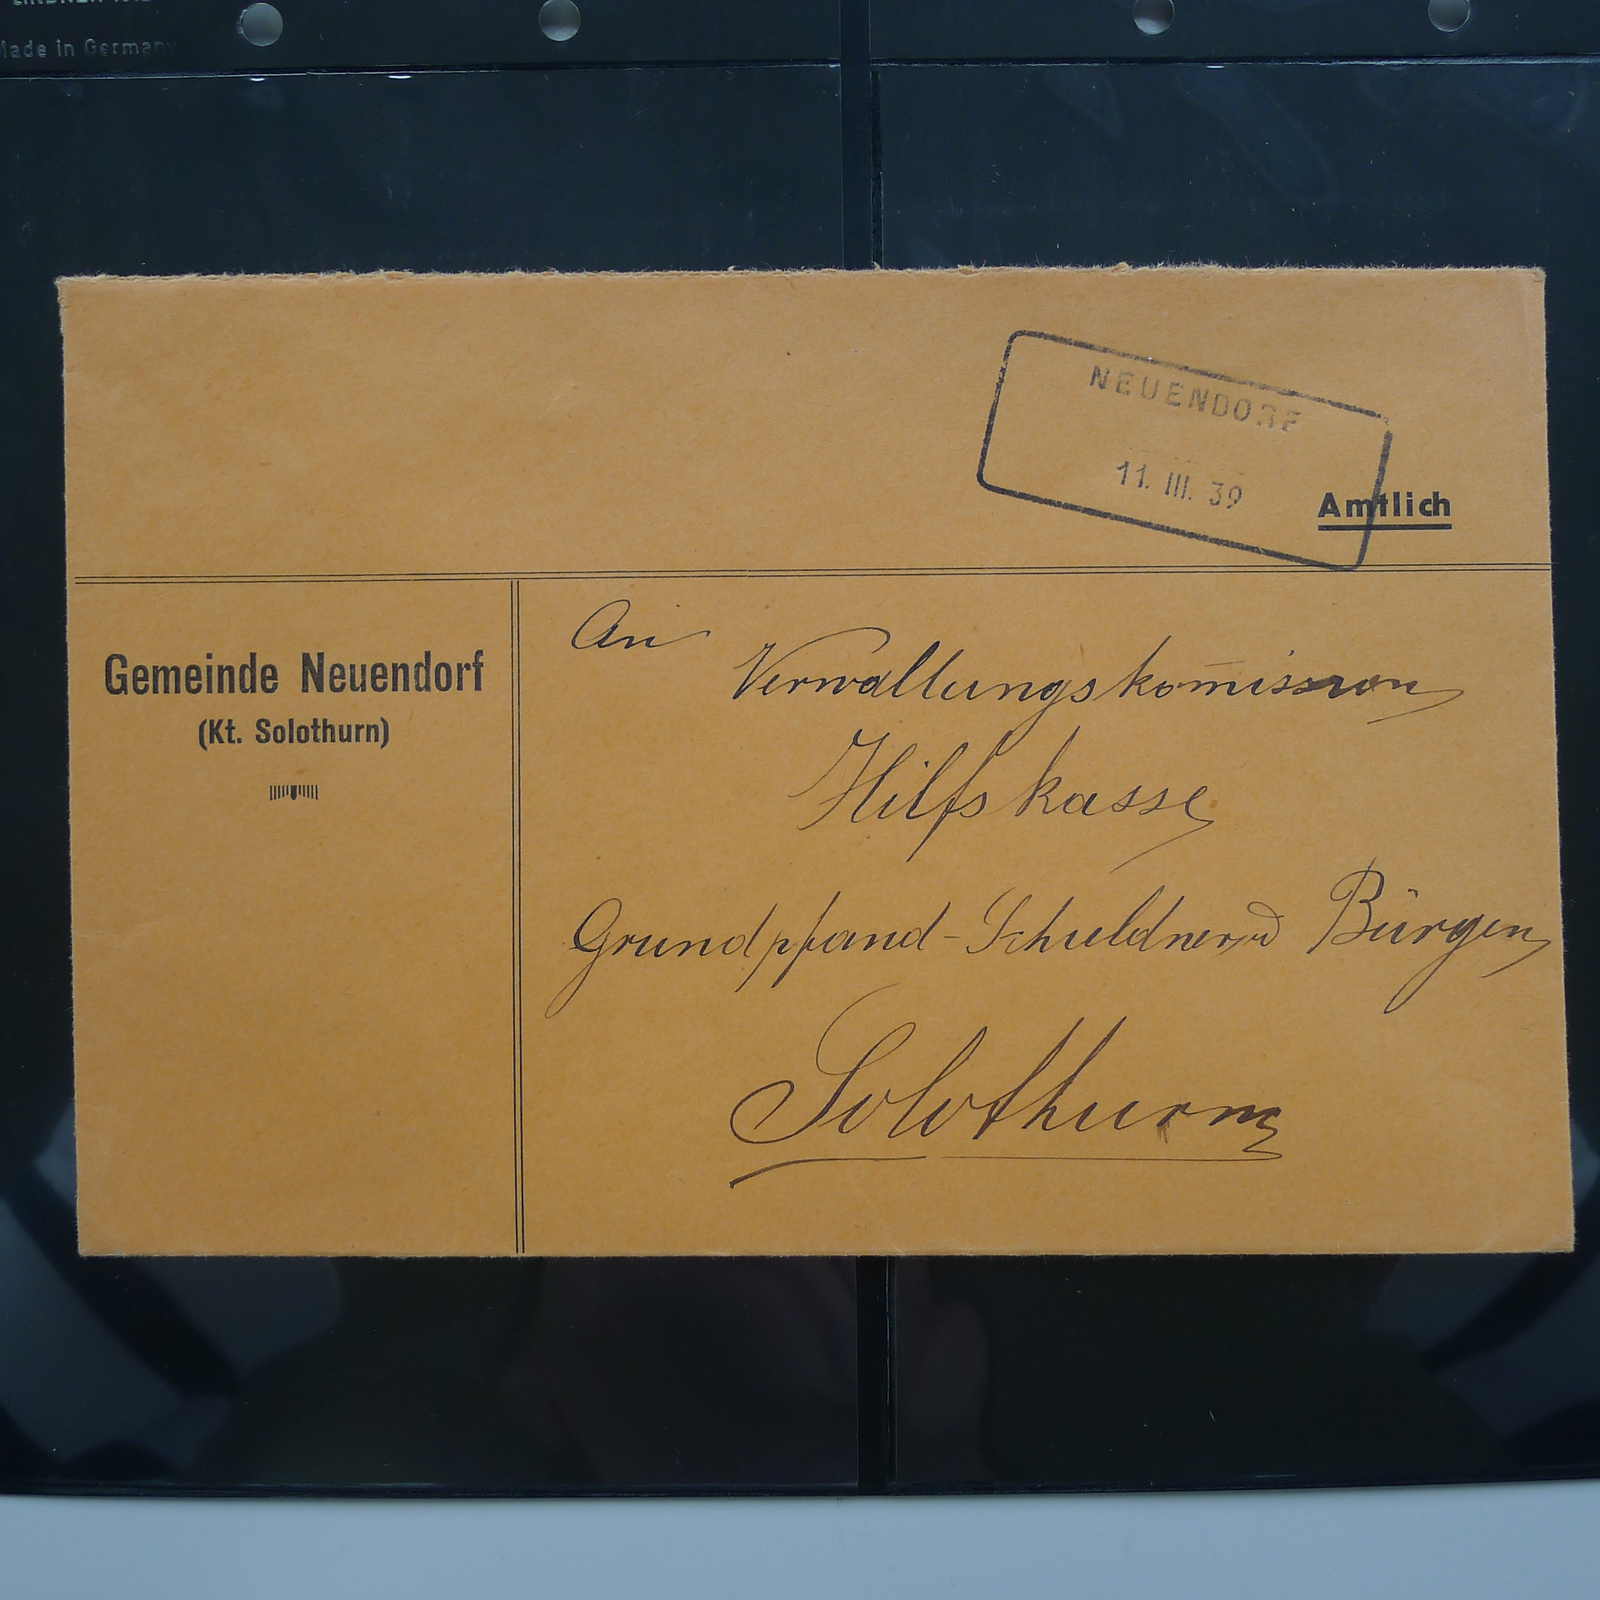 Made in Germany
NEUENDORF
11. III. 39
Amtlich
Gemeinde Neuendorf
(Kt. Solothurn)
An
Verwaltungskom̅ission
Hilfskasse
Grundpfand-Schuldner u Bürgen
Solothurn